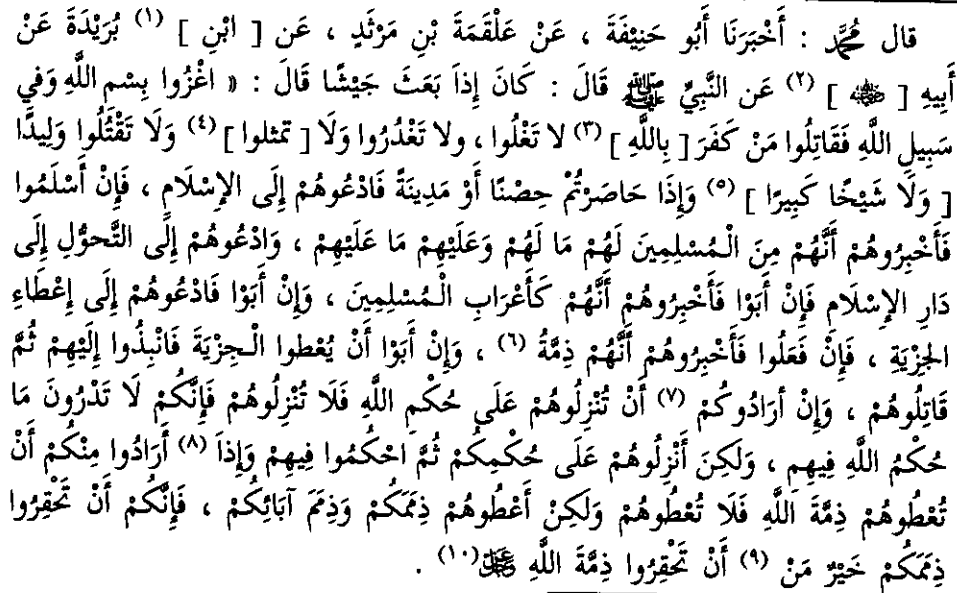 قال مُحَمَّد : أَخْبَرَنَا أَبُو حَنِيْفَةَ ، عَنْ عَلْقَمَةَ بْنِ مَرْثَدٍ ، عَن [ ابْنِ ] (١) بُرَيْدَةَ عَنْ
أَبِيهِ [ ﷺ ] (٢) عَن النَّبِيِّ ﷺ قَالَ : كَانَ إِذاَ بَعَثَ جَيْشًا قَالَ : « اغْزُوا بِسْمِ اللَّهِ وَفي
سَبِيلِ اللَّهِ فَقَاتِلُوا مَنْ كَفَرَ [ بِاللَّهِ ] (٣) لا تَغْلُوا ، ولا تَغْدُرُوا وَلَا [ تمثلوا ] (٤) وَلَا تَقْتُلُوا وَلِيدًا
[ وَلَا شَيْخًا كَبِيرًا ] (٥) وَإِذَا حَاصَرْتُمْ حِصْنًا أَوْ مَدِينَةً فَادْعُوهُمْ إِلَى الإِسْلَامِ ، فَإِنْ أَسْلَمُوا
فَأَخْبِرُوهُمْ أَنَّهُمْ مِنَ الْمُسْلِمِينَ لَهُمْ مَا لَهُمْ وَعَلَيْهِمْ مَا عَلَيْهِمْ ، وَادْعُوهُمْ إِلَى التَّحوُّلِ إِلَى
دَارِ الإِسْلَامِ فَإِنْ أَبَوْا فَأَخْبِرُوهُمْ أَنَّهُمْ كَأَعْرَابِ الْمُسْلِمِينَ ، وَإِنْ أَبَوْا فَادْعُوهُمْ إِلَى إِعْطَاءِ
الجِزْيَةِ ، فَإِنْ فَعَلُوا فَأَخْبِرُوهُمْ أَنَّهُمْ ذِمَّةُ (٦) ، وَإِنْ أَبَوْا أَنْ يُعْطوا الْجِزْيَةَ فَانْبِذُوا إِلَيْهِمْ ثُمَّ
قَاتِلُوهُمْ ، وَإِنْ أرَادُوكُمْ (٧) أَنْ تُنْزِلُوهُمْ عَلَى حُكْمِ اللَّهِ فَلَا تُنْزِلُوهُمْ فَإِنَّكُمْ لَا تَدْرُونَ مَا
حُكْمُ اللَّهِ فِيهِمِ ، وَلَكِنَ أَنْزِلُوهُمْ عَلَى حُكْمِكُمْ ثُمَّ احْكُمُوا فِيهِمْ وَإِذاَ (٨) أَرَادُوا مِنْكُمْ أَنْ
تُعْطُوهُمْ ذِمَّةَ اللَّهِ فَلَا تُعْطُوهُمْ وَلَكِنْ أَعْطُوهُمْ ذِمَمَكُمْ وَذِمَمَ آبَائِكُمْ ، فَإِنَّكُمْ أَنْ تَحْقِرُوا
ذِمَمَكُمْ خَيْرٌ مَنْ (٩) أَنْ تَحْقِرُوا ذِمَّةَ اللَّهِ ﷻ (١٠) .